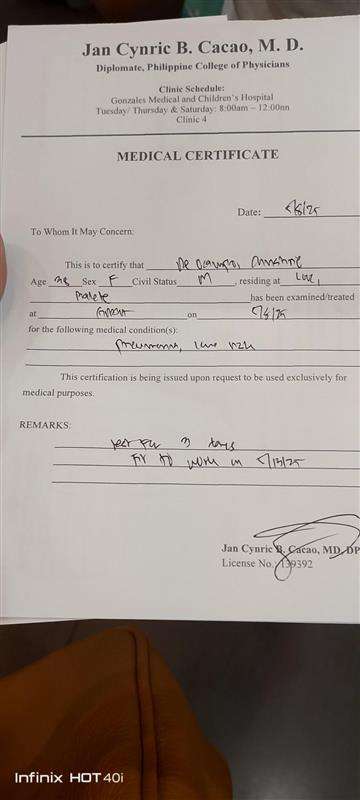 Jan Cynric B. Cacao, M. D.
Diplomate, Philippine College of Physicians
Clinic Schedule:
Gonzales Medical and Children's Hospital
Tuesday/ Thursday & Saturday: 8:00am – 12:00nn
Clinic 4
MEDICAL CERTIFICATE
Date:
To Whom It May Concern:
This is to certify that
Age 38 Sex F Civil Status M, residing at
has been examined/treated
at on 5/6/25
for the following medical condition(s):
Pneumonia, low risk
This certification is being issued upon request to be used exclusively for
medical purposes.
REMARKS:
rest for 3 days
Fit to work on 5/13/25
Jan Cynric B. Cacao, MD, DP
License No. 139392
Infinix HOT 40i